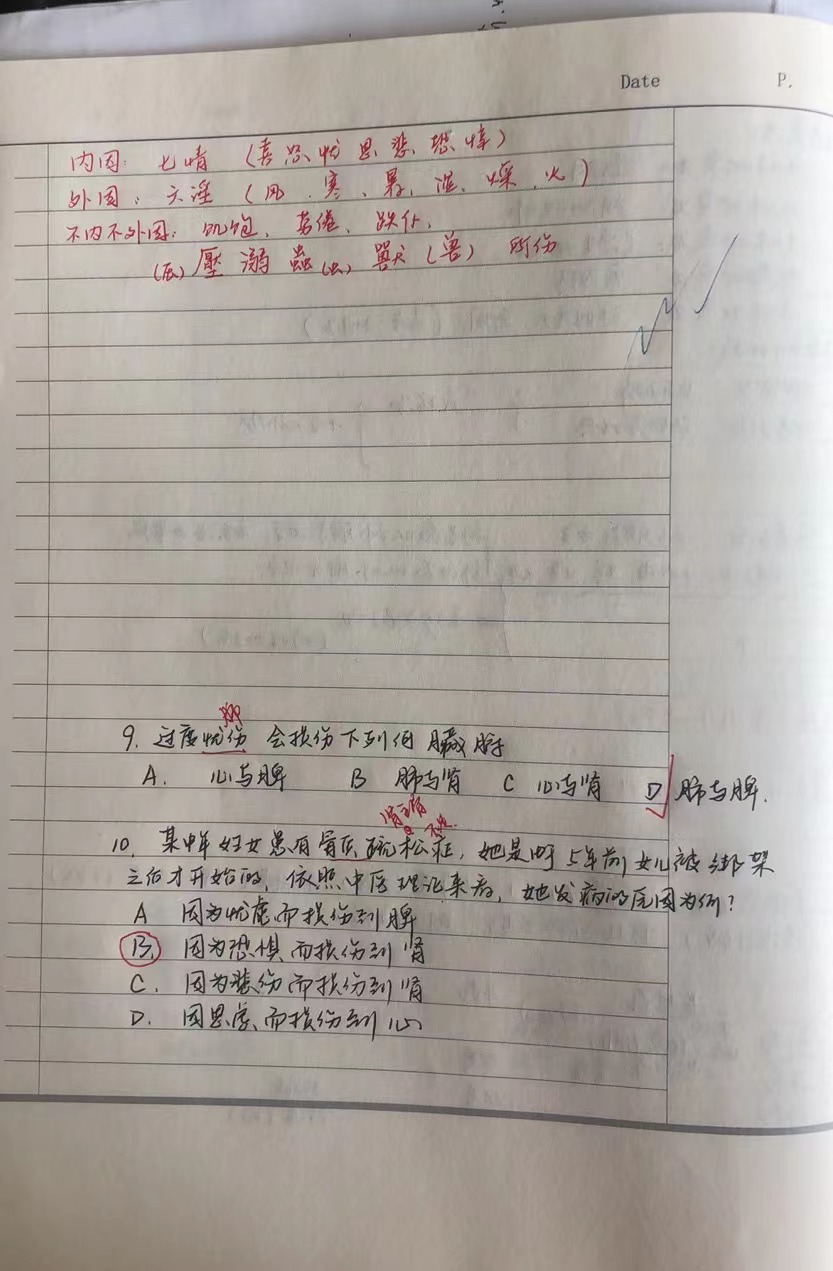 Date P.
内因: 七情 (喜怒忧思悲恐惊)
外因: 六淫 (风、寒、暑、湿、燥、火)
不内不外因: 饥饱、劳倦、跌仆、
(压) 壓 溺 蟲(虫) 獸 (兽) 所伤
9. 过度忧伤 会损伤下列何 臓腑
A. 心与脾 B 肺与肾 C 心与肾 D 肺与脾.
肾主骨
10. 某中年妇女患有骨质疏松症, 她是由于5年前女儿被绑架
之后才开始的, 依照中医理论来看, 她发病的原因为何?
A 因为忧虑而损伤到脾
B. 因为恐惧而损伤到肾
C. 因为悲伤而损伤到肾
D. 因思虑而损伤到心